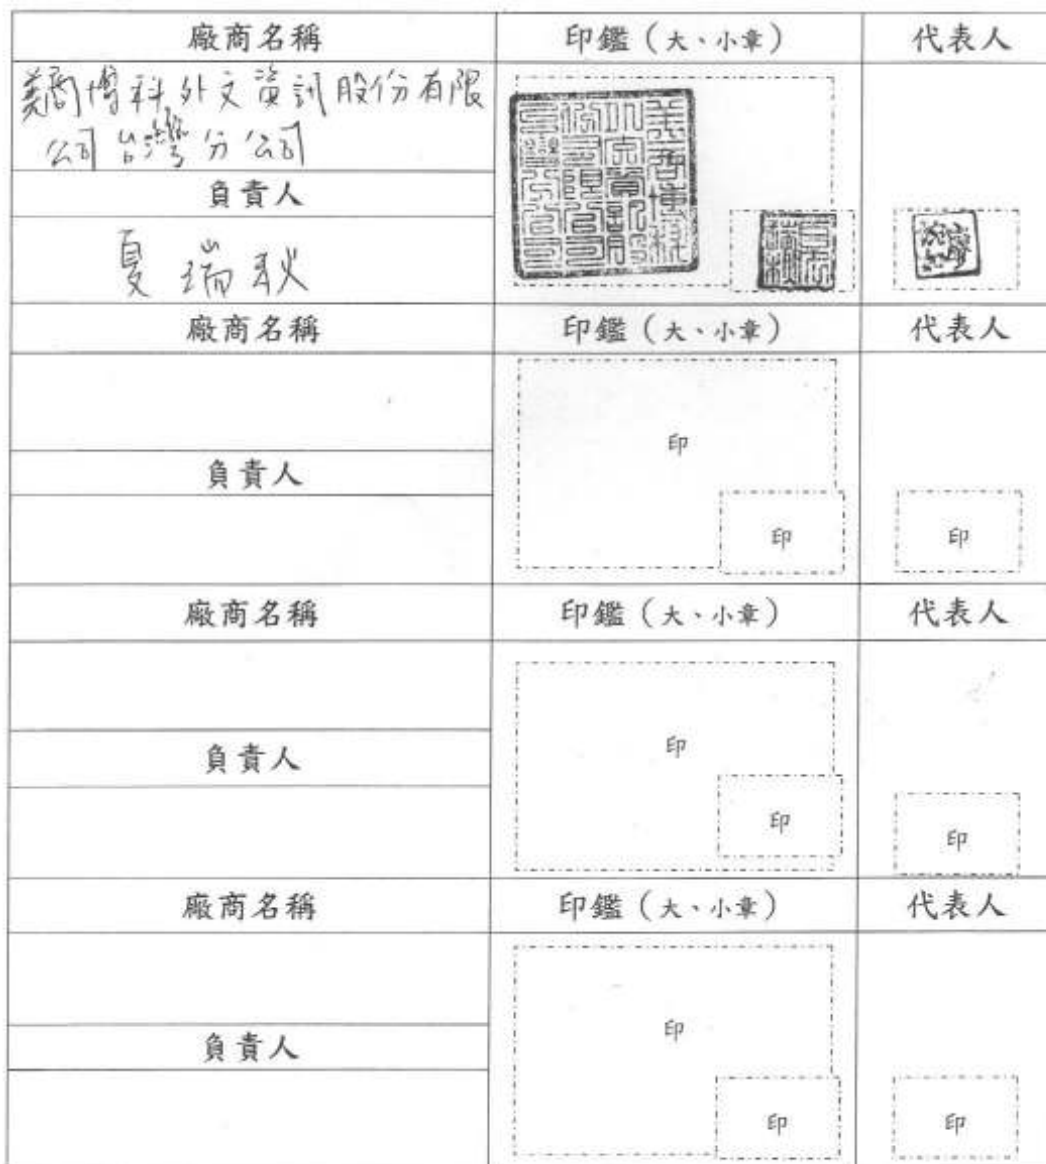 廠商名稱 印鑑（大、小章） 代表人
美商博科外文資訊股份有限
公司台灣分公司
負責人
夏瑞秋
廠商名稱 印鑑（大、小章） 代表人
印
負責人
印 印
廠商名稱 印鑑（大、小章） 代表人
印
負責人
印 印
廠商名稱 印鑑（大、小章） 代表人
印
負責人
印 印